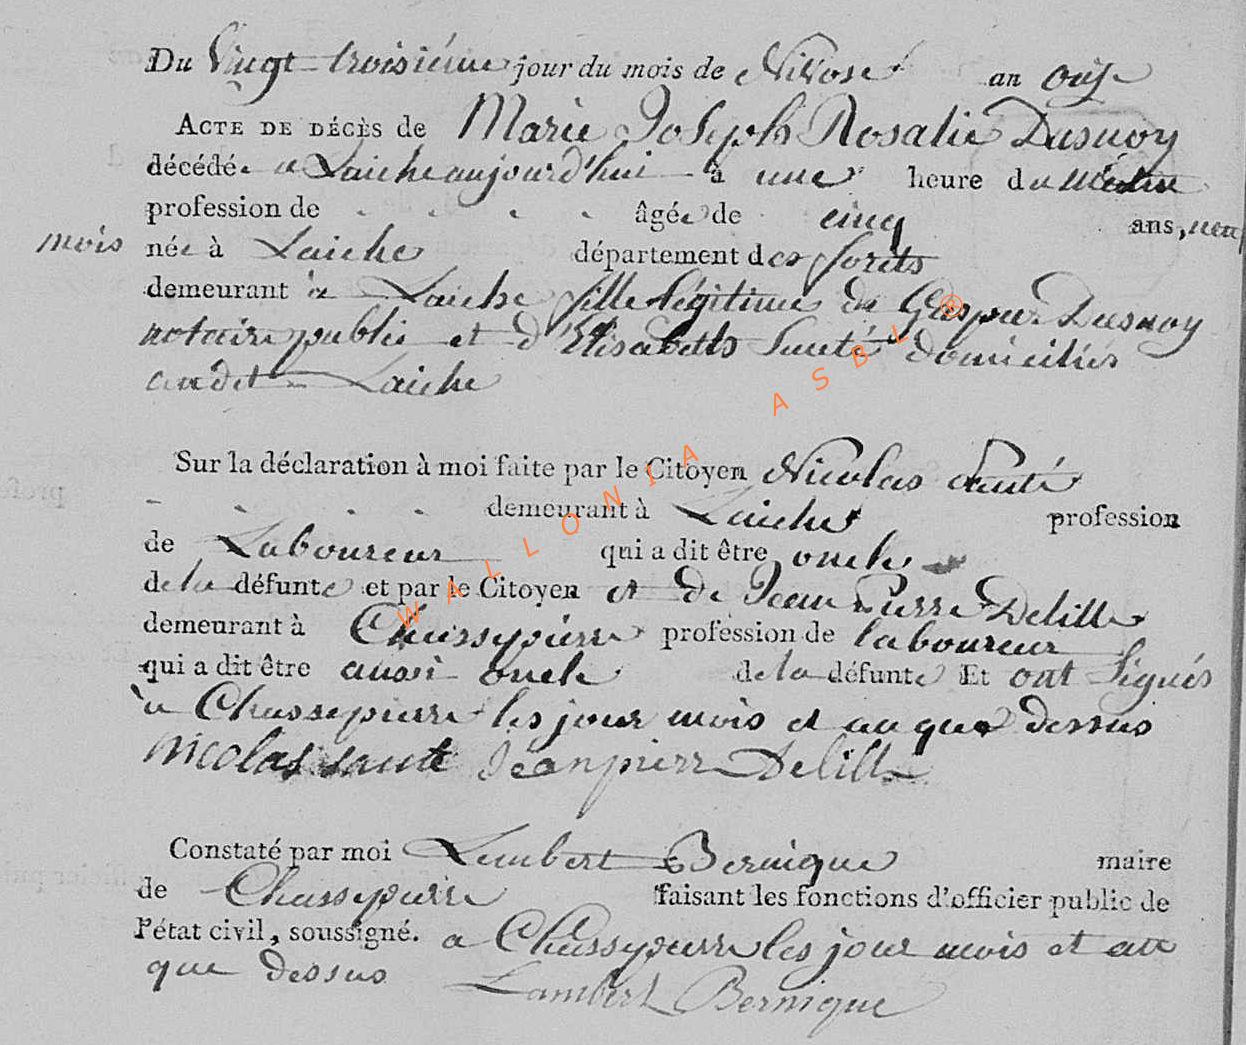 Du Vingt troisiéme jour du mois de Nivose an onze
ACTE DE DÉCÈS de Marie Joseph Rosalie Dusnoy
décédée a Laiche aujourd'hui à une heure du matin
profession de . . . . âgée de cinq ans, neuf
mois née à Laiche département des forets
demeurant à Laiche fille légitime de Gaspar Dusnoy
notaire public et d'Elisabeth Santé domiciliés
audit Laiche
Sur la déclaration à moi faite par le Citoyen Nicolas Santé
demeurant à Laiche profession
de Laboureur qui a dit être oncle
de la défunte et par le Citoyen et de Jean Pierre Delille
demeurant à Chassepierre profession de laboureur
qui a dit être aussi oncle de la défunte Et ont signés
à Chassepierre les jour mois et an que dessus
Nicolas santé Jean pierre Delille
Constaté par moi Lambert Bernique maire
de Chassepierre faisant les fonctions d'officier public de
l'état civil, soussigné. a Chassepierre les jour mois et an
que dessus Lambert Bernique
WALLONIA ASBL ®